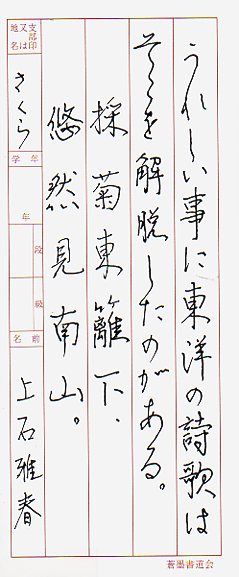 うれしい事に東洋の詩歌は
そこを解脱したのがある。
採菊東籬下、
悠然見南山。
支部印
又は
地名
さくら
学年
年
段
級
名前
上石雅春
蒼墨書道会